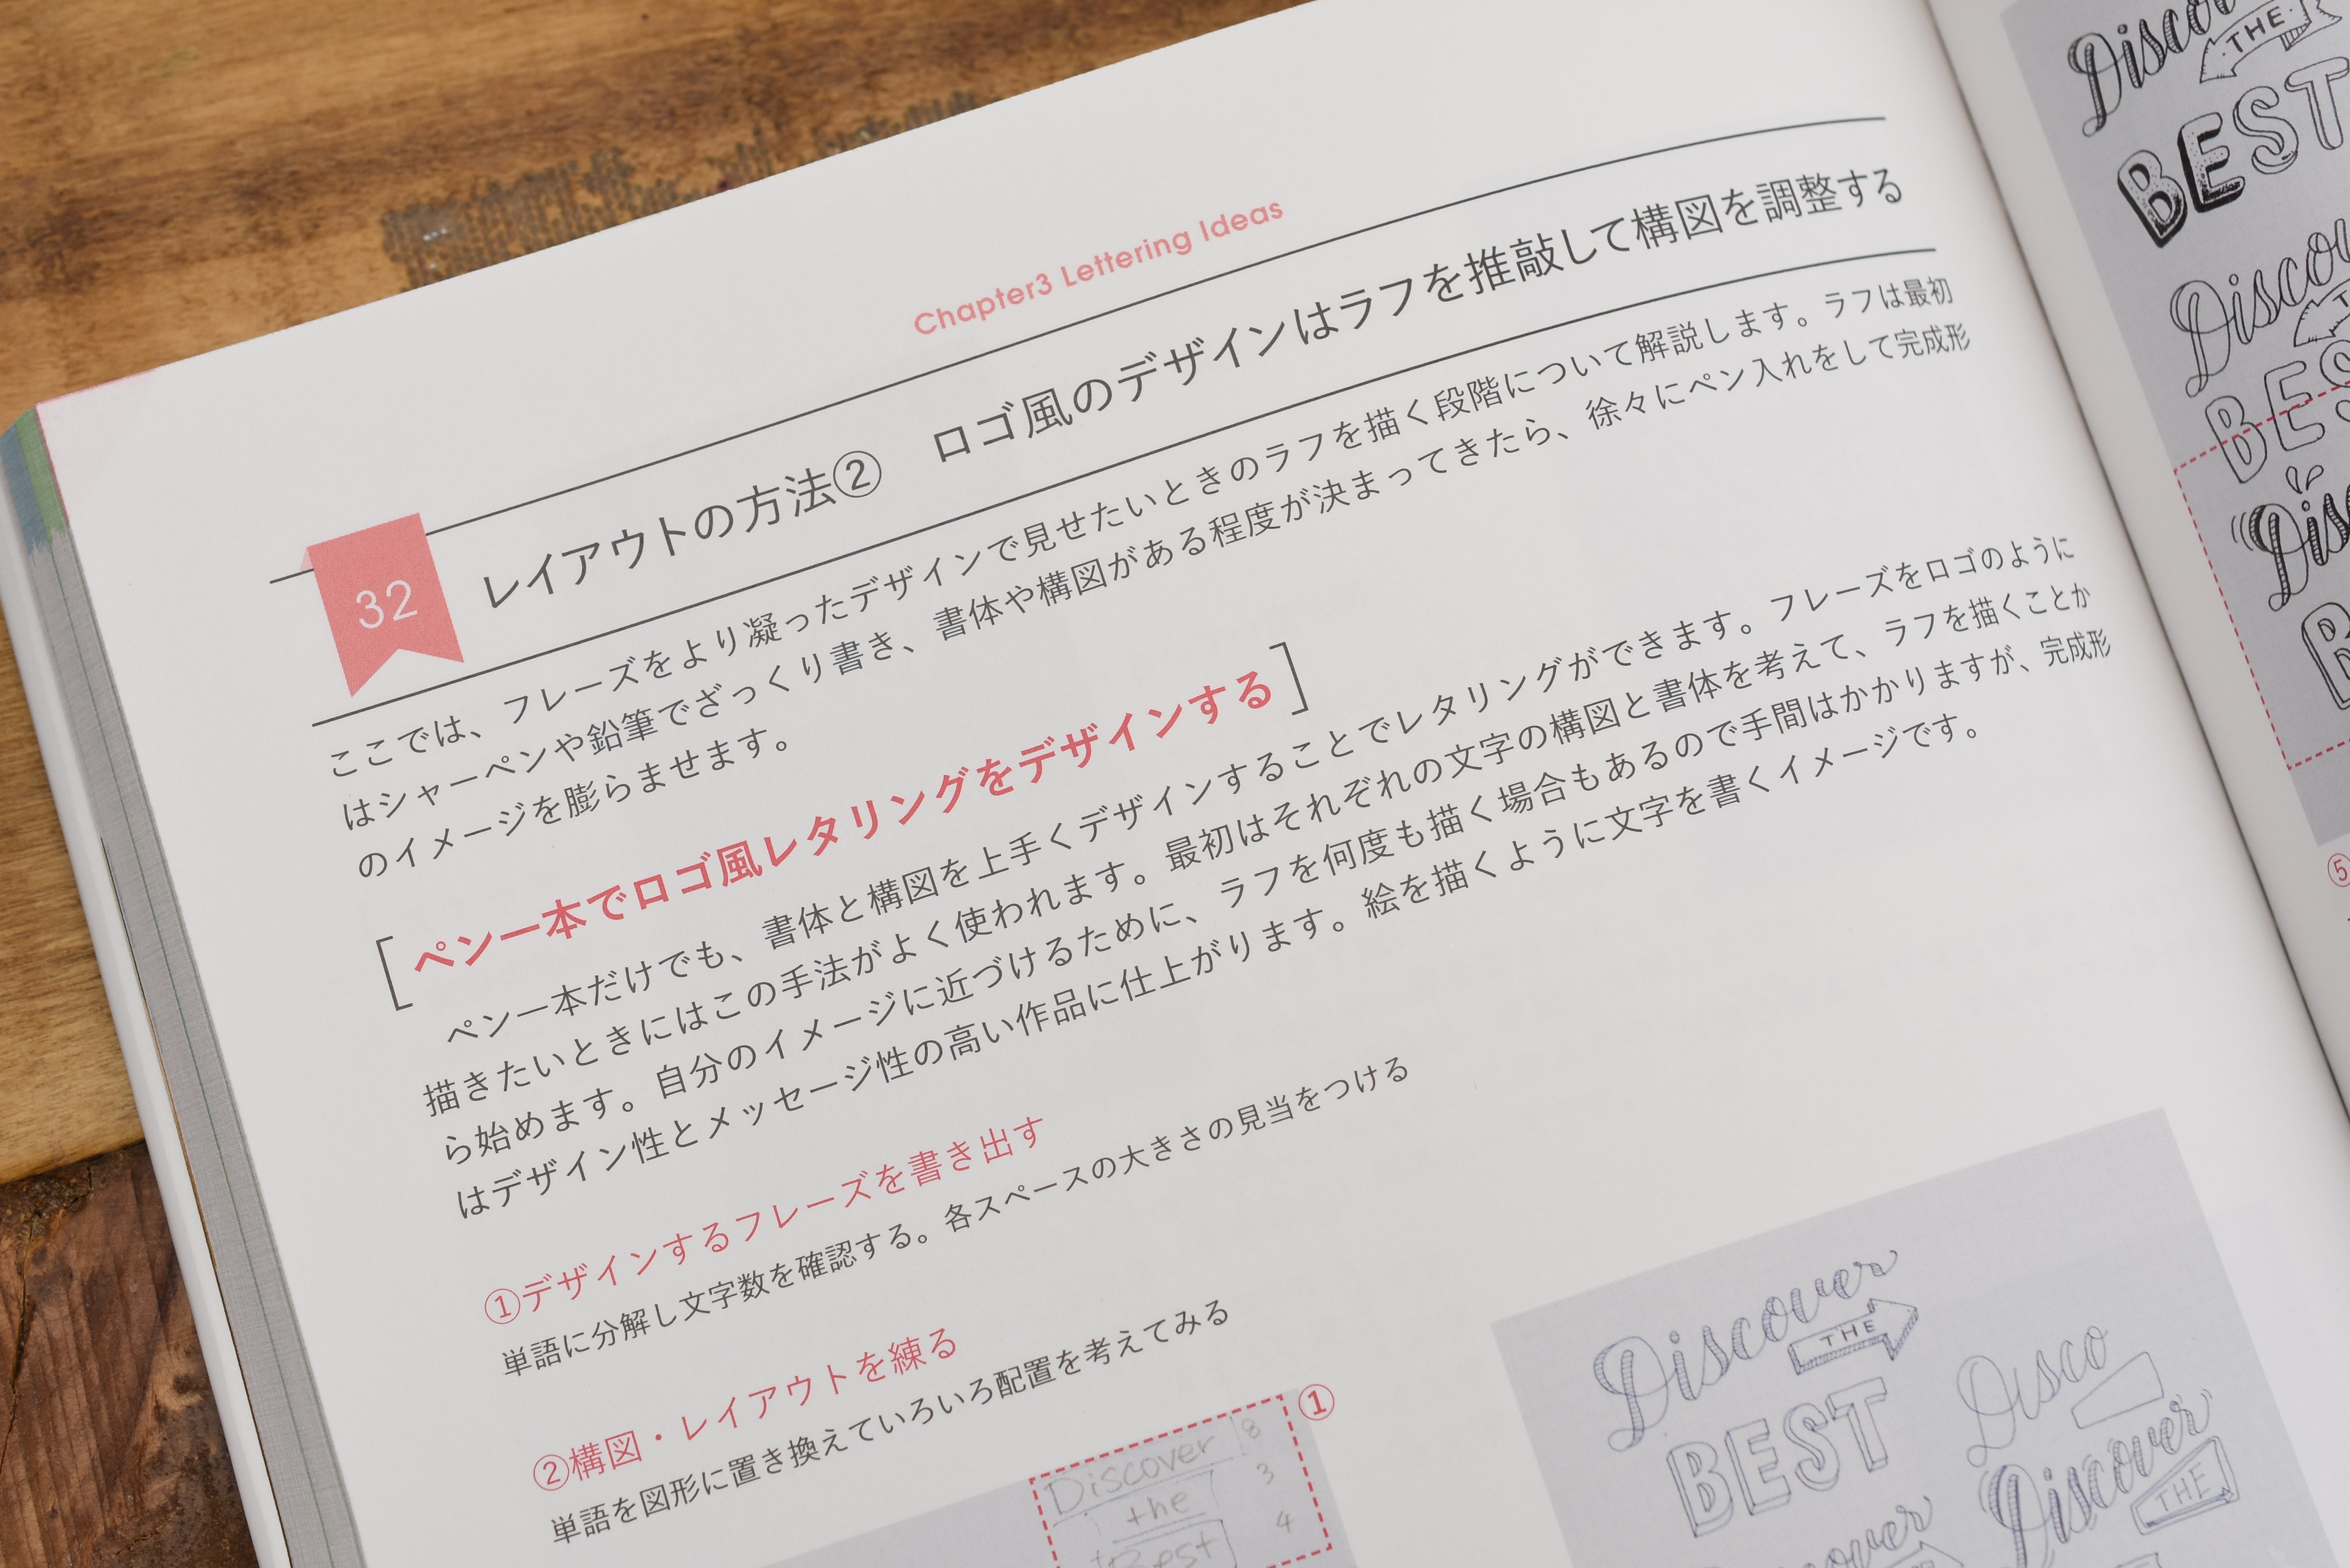 Chapter3 Lettering Ideas
32
レイアウトの方法②　ロゴ風のデザインはラフを推敲して構図を調整する
ここでは、フレーズをより凝ったデザインで見せたいときのラフを描く段階について解説します。ラフは最初
はシャーペンや鉛筆でざっくり書き、書体や構図がある程度が決まってきたら、徐々にペン入れをして完成形
のイメージを膨らませます。
[ペン一本でロゴ風レタリングをデザインする]
ペン一本だけでも、書体と構図を上手くデザインすることでレタリングができます。フレーズをロゴのように
描きたいときにはこの手法がよく使われます。最初はそれぞれの文字の構図と書体を考えて、ラフを描くことか
ら始めます。自分のイメージに近づけるために、ラフを何度も描く場合もあるので手間はかかりますが、完成形
はデザイン性とメッセージ性の高い作品に仕上がります。絵を描くように文字を書くイメージです。
①デザインするフレーズを書き出す
単語に分解し文字数を確認する。各スペースの大きさの見当をつける
②構図・レイアウトを練る
単語を図形に置き換えていろいろ配置を考えてみる
①
Discover 8
the 3
Best 4
Discover
THE
BEST
Disco
Discover
THE
THE
BEST
⑤